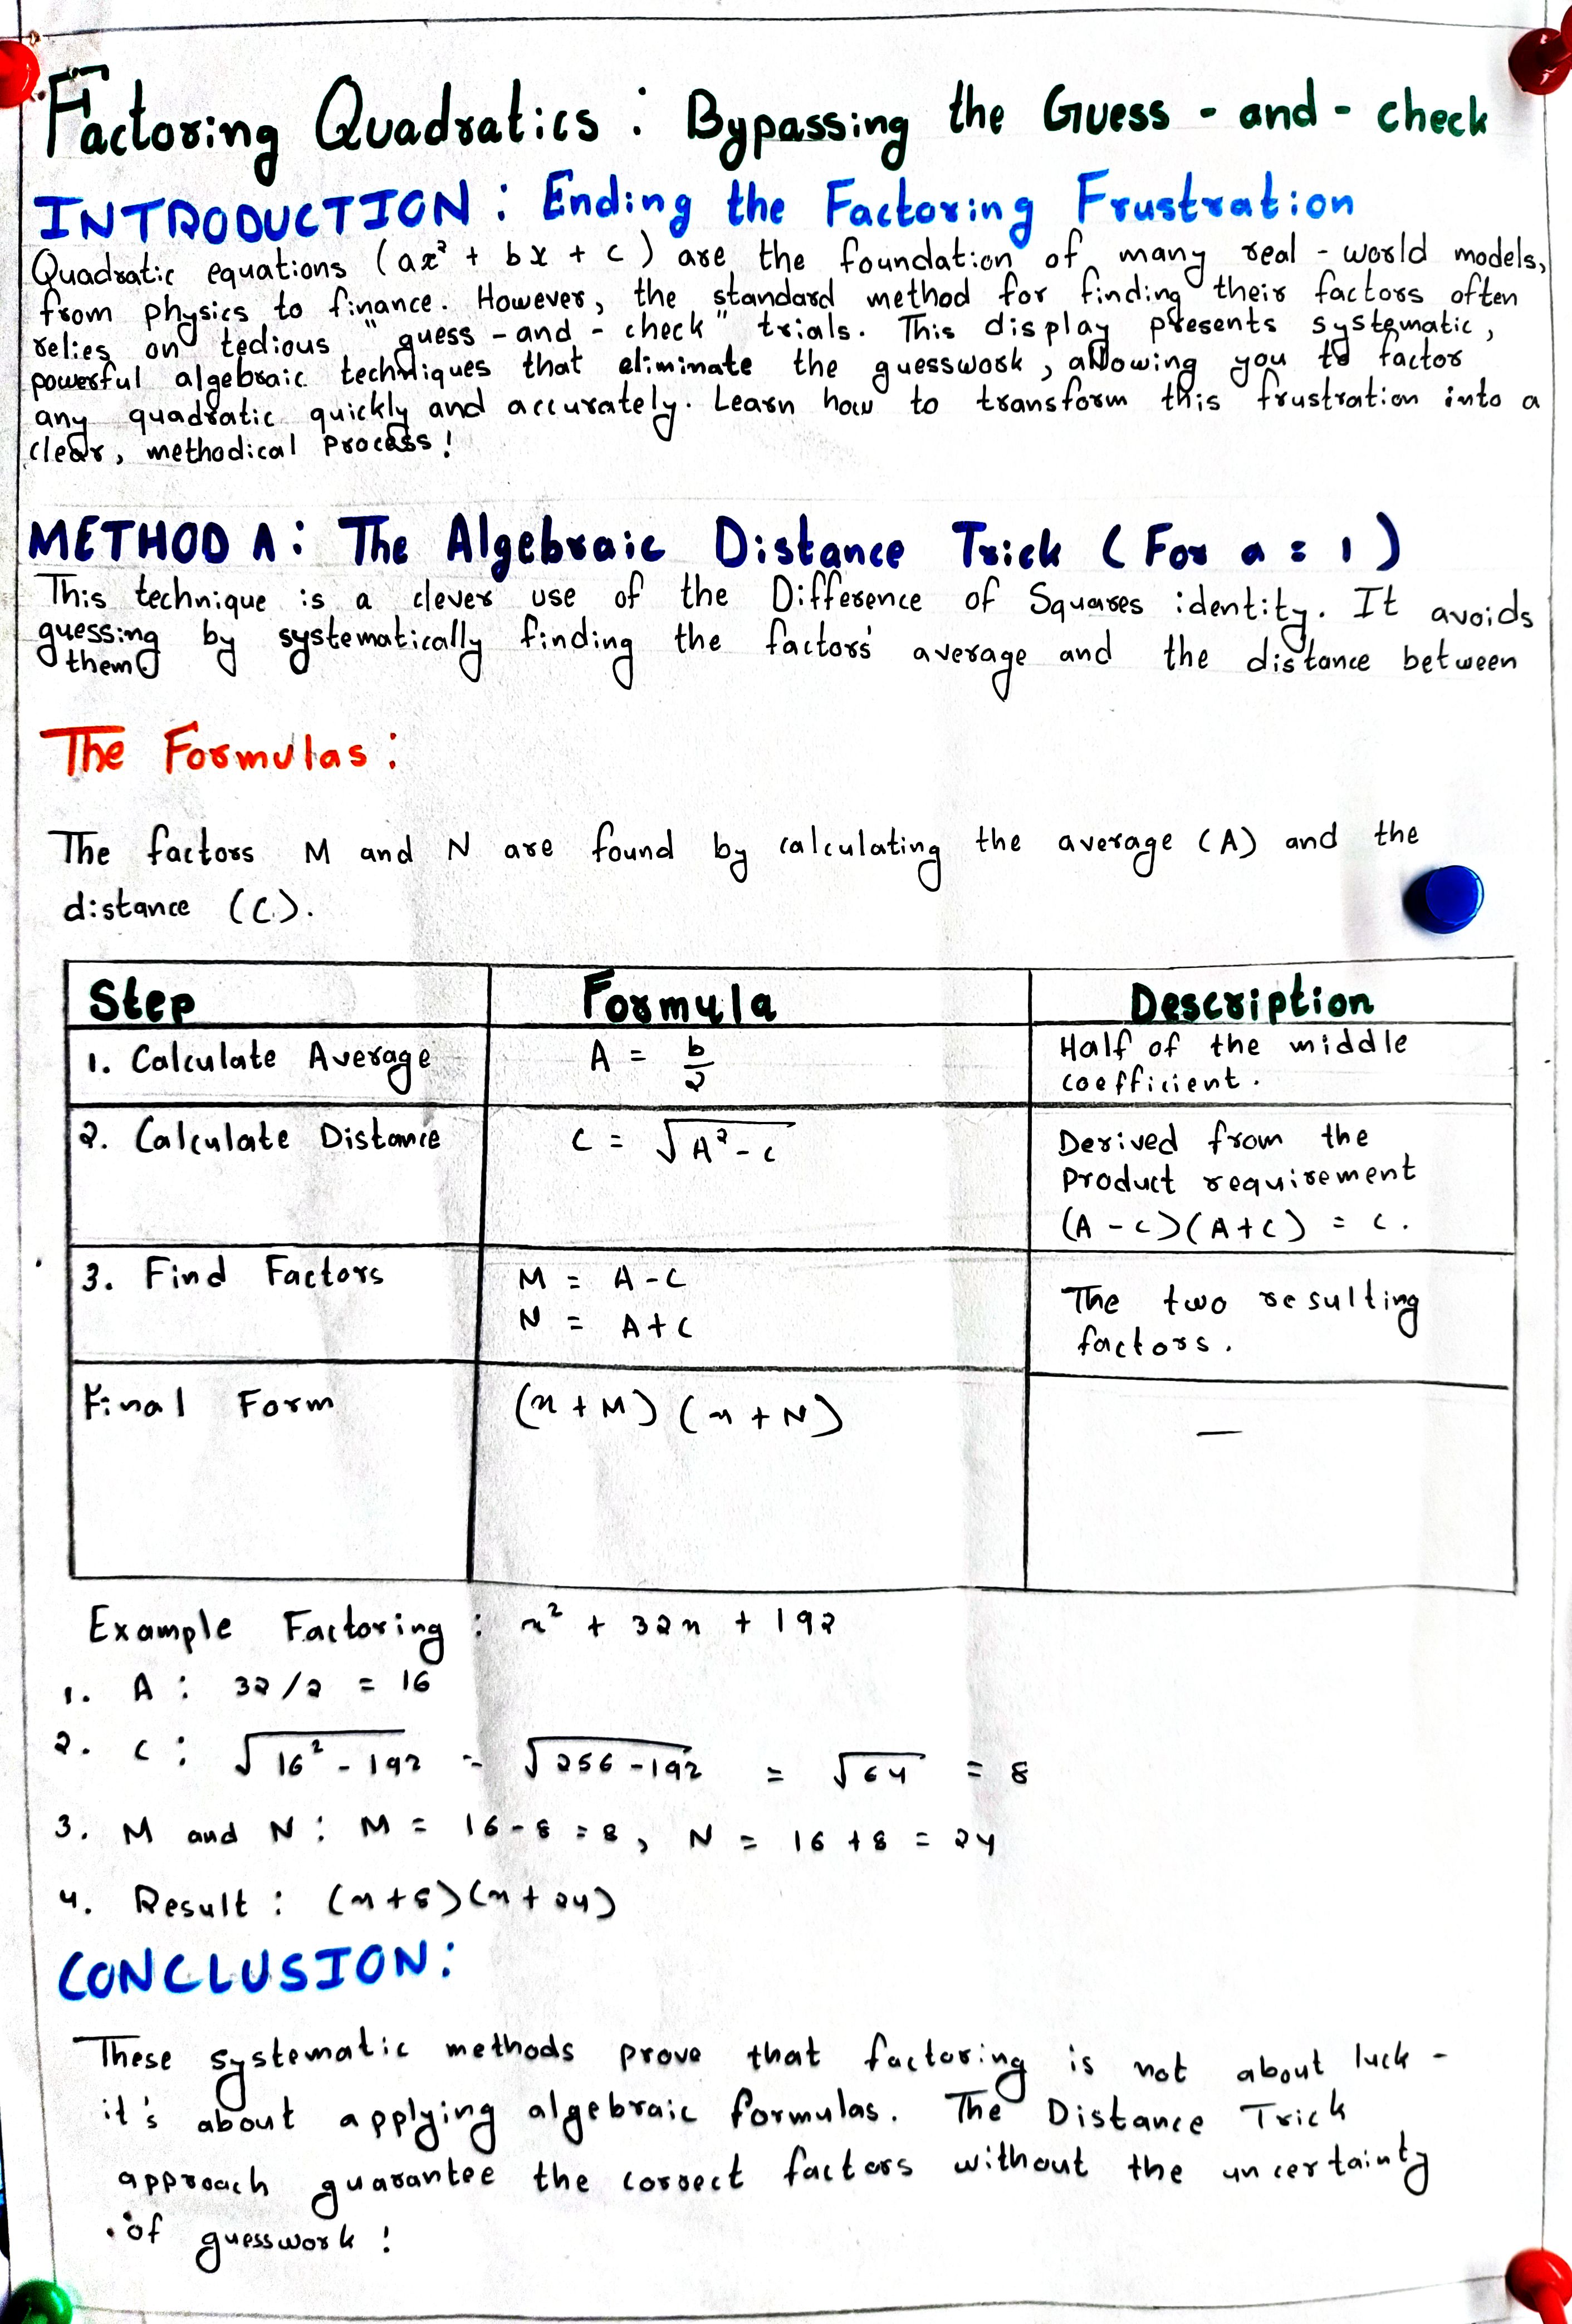 Factoring Quadratics : Bypassing the Guess - and - check
INTRODUCTION : Ending the Factoring Frustration
Quadratic equations (ax² + bx + c) are the foundation of many real - world models,
from physics to finance. However, the standard method for finding their factors often
relies on tedious "guess - and - check" trials. This display presents systematic,
powerful algebraic techniques that eliminate the guesswork, allowing you to factor
any quadratic quickly and accurately. Learn how to transform this frustration into a
clear, methodical process!
METHOD A: The Algebraic Distance Trick (For a = 1)
This technique is a clever use of the Difference of Squares identity. It avoids
guessing by systematically finding the factors' average and the distance between
them
The Formulas:
The factors M and N are found by calculating the average (A) and the
distance (C).
Step Formula Description
1. Calculate Average A = b/2 Half of the middle
coefficient.
2. Calculate Distance C = √A² - c Derived from the
product requirement
(A - C)(A + C) = c.
3. Find Factors M = A - C
N = A + C
The two resulting
factors.
Final Form (x + M) (x + N) —
Example Factoring : x² + 32x + 192
1. A : 32/2 = 16
2. C : √16² - 192 = √256 - 192 = √64 = 8
3. M and N : M = 16 - 8 = 8, N = 16 + 8 = 24
4. Result : (x + 8)(x + 24)
CONCLUSION:
These systematic methods prove that factoring is not about luck -
it's about applying algebraic formulas. The Distance Trick
approach guarantee the correct factors without the uncertainty
of guesswork !